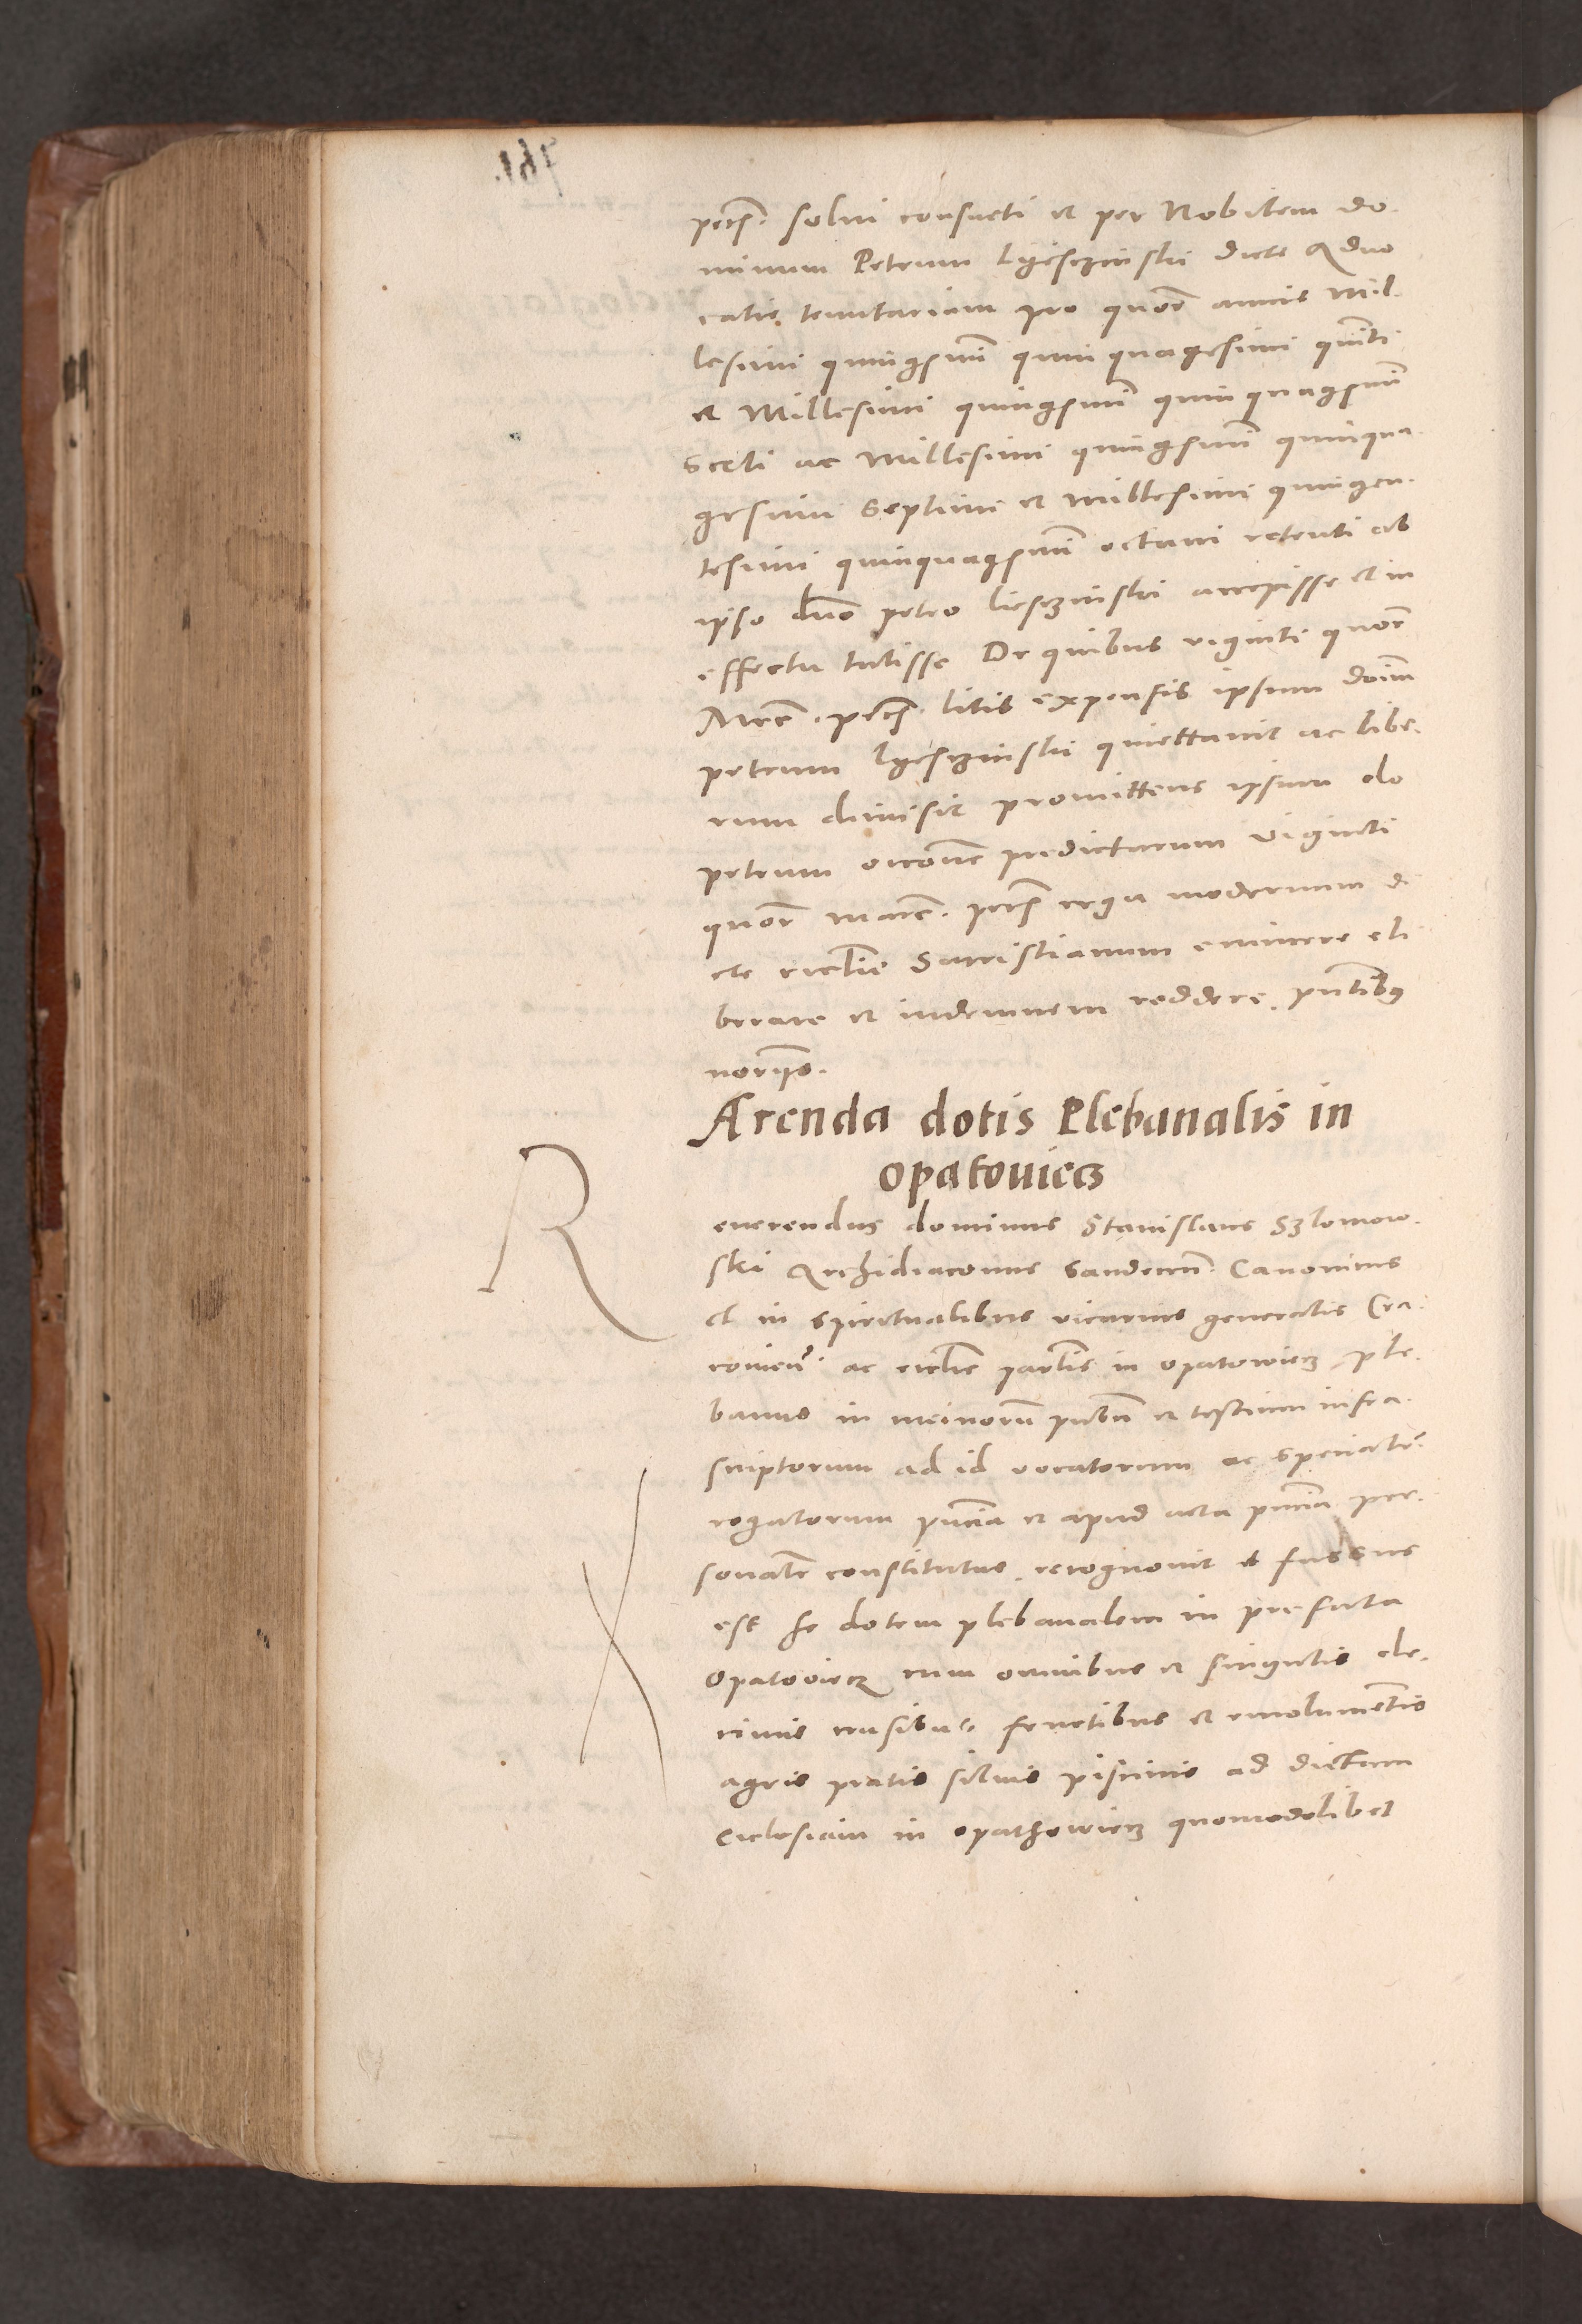 pecȩ. solui consueti et per Nobilem do-
minum Petrum Lyesczinski dicte Aduo
catie tenutarium pro quor annis Mil-
lesimi quingsimi quinquagesimi quinti
et Millesimi quingsimi quinquagsimi
Sexti ac Millesimi quingsimi quinqua-
gesimi Septimi et Millesimi quingen-
tesimi quinquagsimi octaui retenti ab
ipso dno Petro Liesczinski accepisse et in
effectu tulisse De quibus viginti quor
Mrc. pecȩ. litis expensis ipsum doim
Petrum Lyesczinski quiettauit ac libe-
rum dimisit promittens ipsum do
Petrum occone predictarum viginti
quor marc. pecȩ erga modernum d
cte ecclie Sacristianum euincere eli
berare et indemnem reddere. pntibus
noriis.
Arenda dotis Plebanalis in
Opatouiecz
Reuerendus dominus Stanislaus Szlomow-
ski Archidiaconus Sandecen. Canonicus
et in spiritualibus vicarius generalis Cra-
couien. ac ecclie parlis in Opatowiecz ple-
banus in mei norii pubci et testium infra-
scriptorum ad id vocatorum ac specialr
rogatorum pncia et apud acta pncia per-
sonalr constitutus. recognouit et fassus
est se dotem plebanalem in prefata
Opatowiecz cum omnibus et singulis de-
cimis censibus. fructibus et emolumentis
agris pratis siluis piscinis ad dictam
Ecclesiam in Opathowiecz quomodolibet